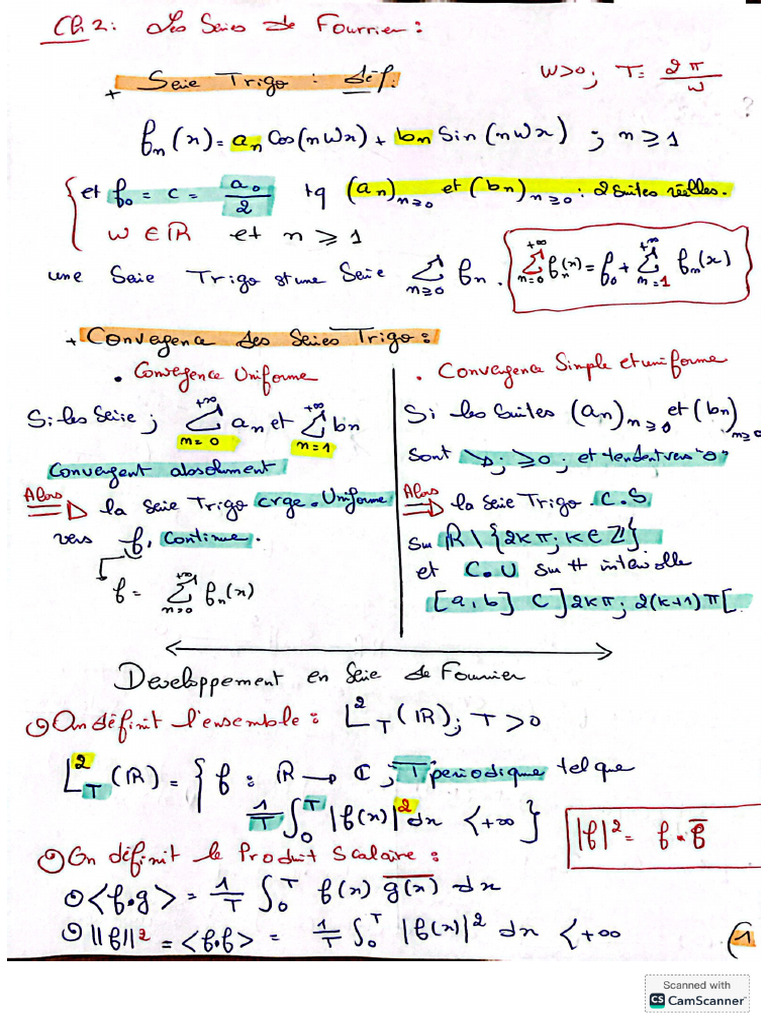 Ch 2: Les Séries de Fourrier :
+ Série Trigo : déf.
W>0 ; T = 2π/W
?
fn(x) = an Cos(nWx) + bn Sin(nWx) ; n ≥ 1
{ et f0 = c = a0/2 tq (an)n≥0 et (bn)n≥0 : 2 suites réelles.
W ∈ IR et n ≥ 1
une Serie Trigo st une Serie Σn≥0 fn.
Σ(n=0, +∞) fn(x) = f0 + Σ(n=1, +∞) fn(x)
+ Convergence des Séries Trigo :
• Convergence Uniforme
Si les Serie ; Σ(n=0, +∞) an et Σ(n=1, +∞) bn
Convergent absolument
Alors ⇒ la serie Trigo crge. Uniforme
vers f, continue.
f = Σ(n≥0, +∞) fn(x)
• Convergence Simple et uniforme
Si les Suites (an)n≥0 et (bn)n≥0
Sont ↘ ; ≥0 ; et tendent vers "0"
Alors ⇒ la serie Trigo. C.S
sur IR \ {2kπ ; k ∈ Z}
et C.U sur tt intervalle
[a,b] C ]2kπ ; 2(k+1)π[
Developpement en Serie de Fourrier
⊙ On définit l'ensemble : L²T(IR) ; T > 0
L²T(IR) = { f : IR → C ; T périodique tel que
1/T ∫0^T |f(x)|² dx < +∞ }
|f|² = f . f̅
⊙ On définit le Produit Scalaire :
⊙ <f.g> = 1/T ∫0^T f(x) g̅(̅x̅)̅ dx
⊙ ||f||² = <f.f> = 1/T ∫0^T |f(x)|² dx < +∞
(1
Scanned with
CS CamScanner